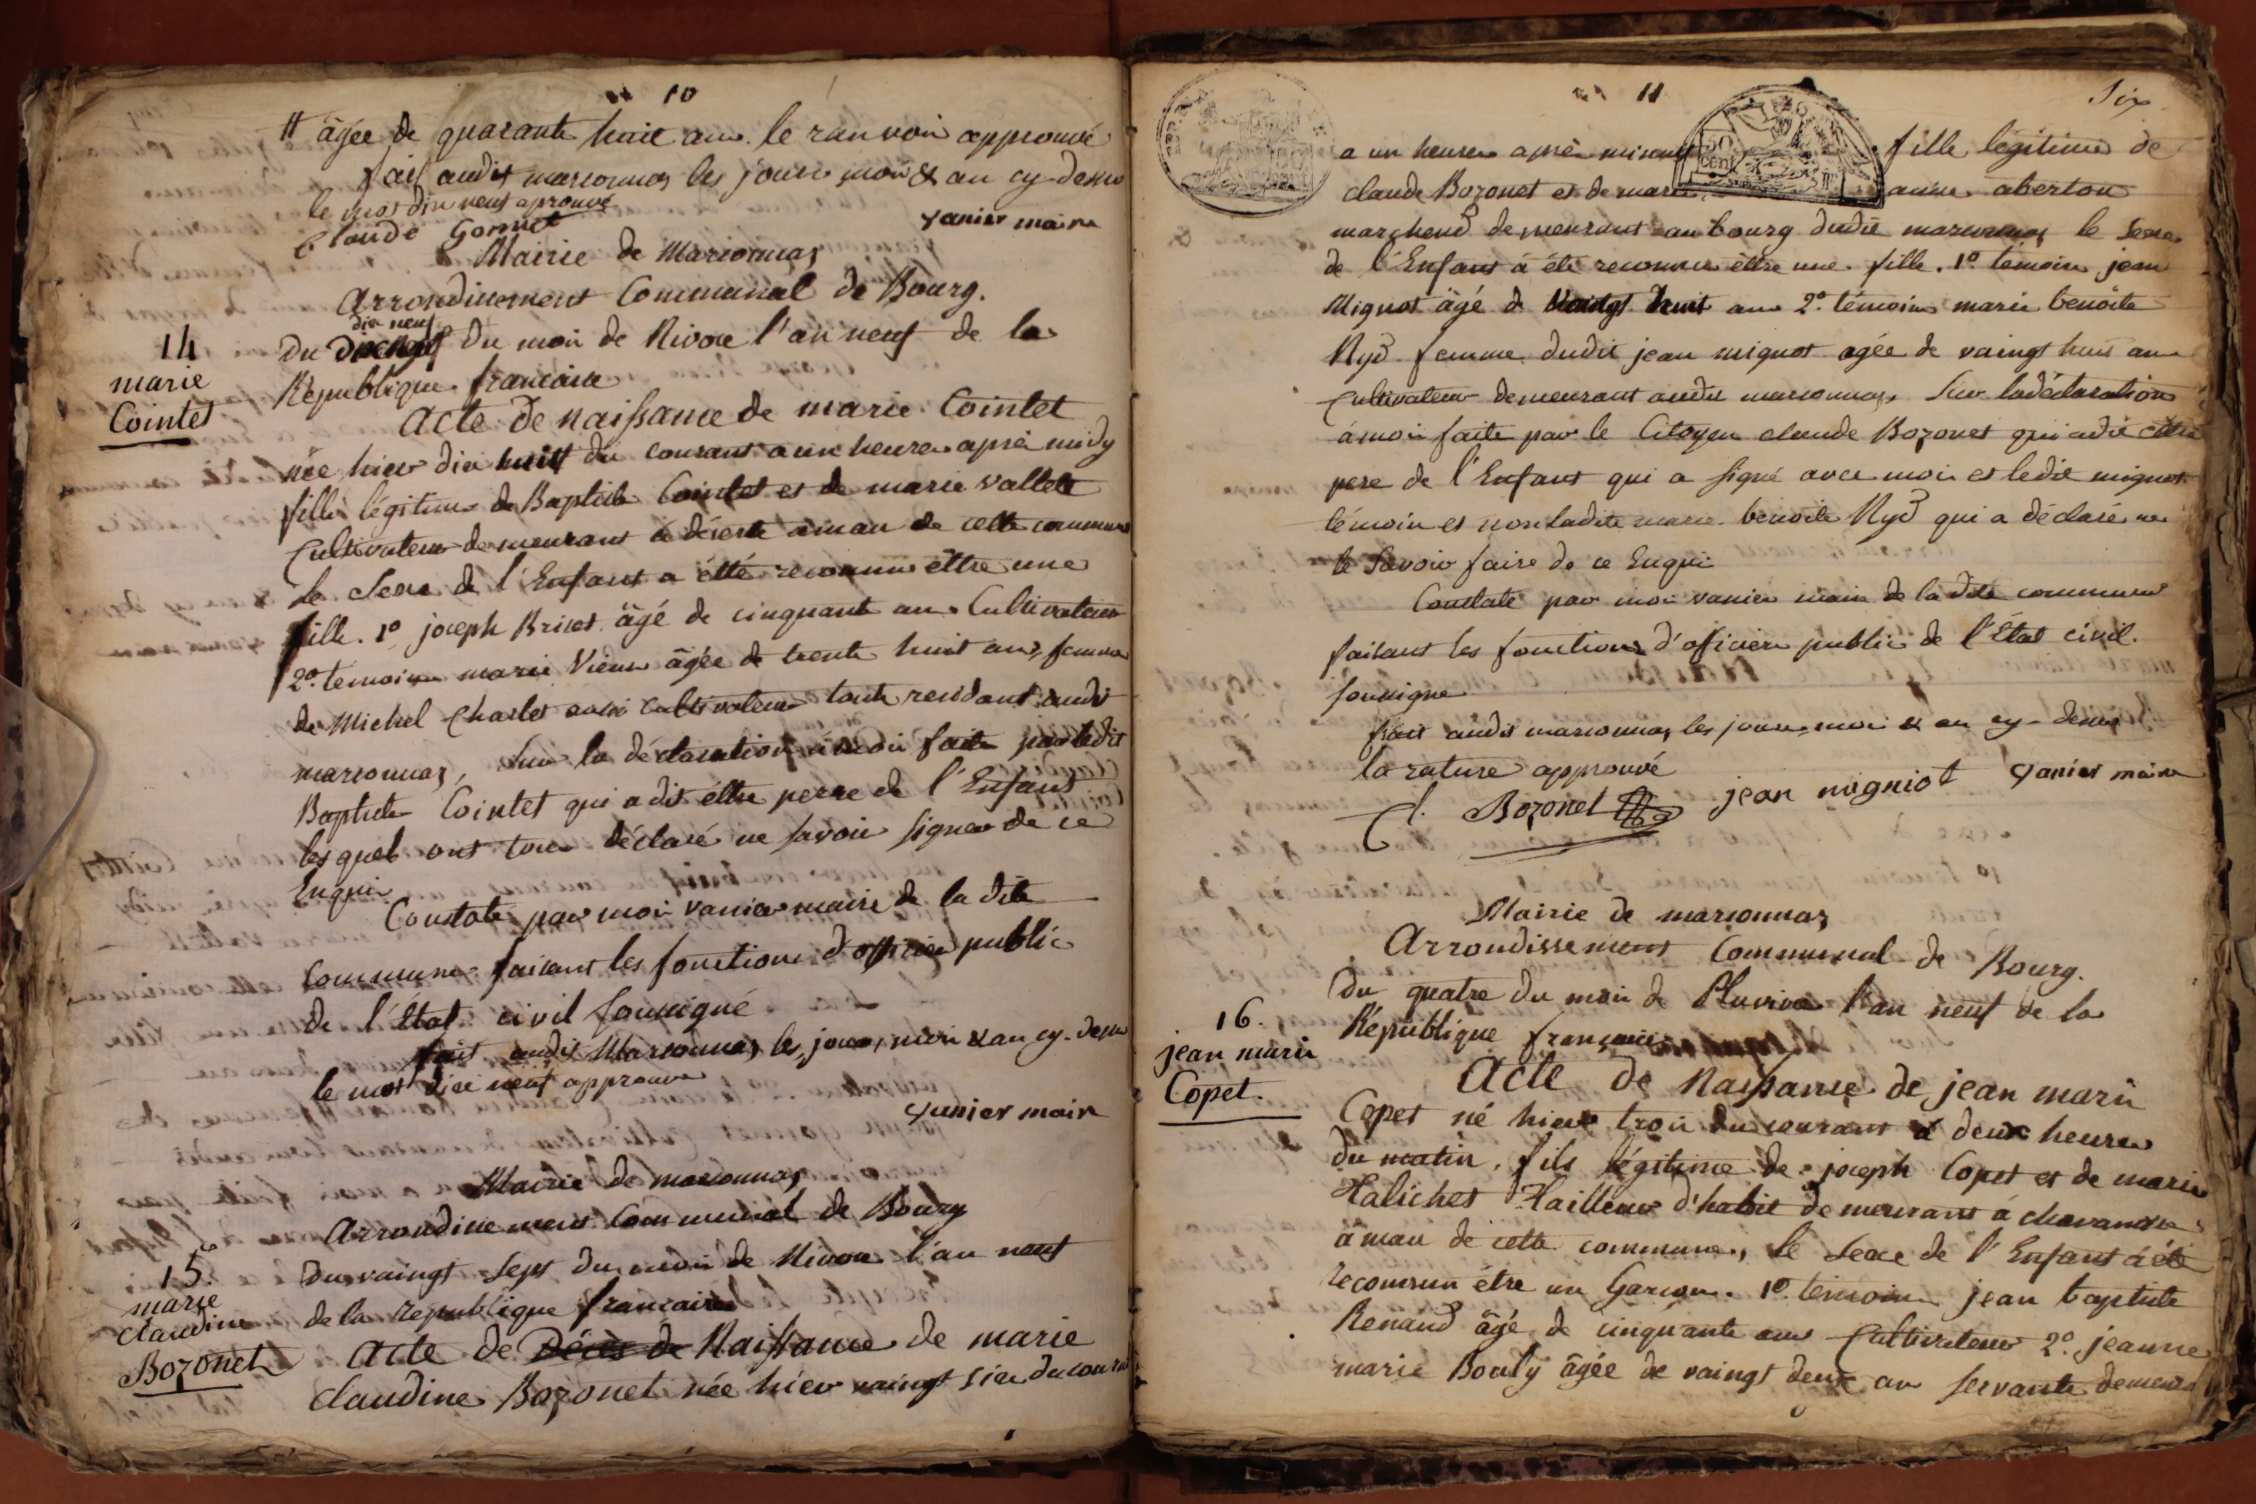 10
# âgée de quarante huit ans. le ranvoir approuvé
fait audit marsonnas les jours, mois & an cy-dessus
le mot dix neuf aprouvé
Claude Gonnet vanier maire
Mairie de Marsonnas
Arrondissement Communal de Bourg.
dix neuf
14
du du mois de Nivose l'an neuf de la
marie
Cointet
République francaise
Acte de naissance de marie Cointet
née hier dix huit du courant a un heures après midy
fille légitime de Baptiste Cointet et de marie vallett
Cultivateur demeurant à déserte amau de cette commune
le Sexe de l'Enfant a étté reconnu êttre une
fille. 1º joseph Brisot âgé de cinquant ans Cultivateur
2º temoins marie Vieux âgée de trente huit ans, femme
de Michel Charlet aussi cultivateur touts residant audit
marsonnas, Sur la déclaration à moi faite par ledit
Baptiste Cointet qui a dit êttre perre de l'Enfant
lesquels ont tous déclaré ne savoir signer de ce
Enquis
Constate par moi vanier maire de la dite
Commune faisant les fonctions d'officier public
de l'état civil soussigné
fait audit Marsonnas les jours, mois & an cy-dessus
le mot dixe neuf approuve
vanier maire
Mairie de marsonnas
Arrondissement Communal de Bourg
15.
du vaingt sept du mois de Nivose l'an neuf
marie
claudine
Bozonet
de la republique francaise
Acte de Décès de Naissance de marie
claudine Bozonet née hier vaingt six du courant
11
Six
50 cent
a un heures après minuit fille légitime de
claude Bozonet et de marie anne aberton
marchend demeurant au bourg dudit marsonnas le Sexe
de l'Enfant à été reconnu êttre une fille. 1º témoin jean
Mignot âgé de vaingt huit ans 2º témoins marie benoite
Nyd femme dudit jean mignot agée de vaingt huit ans
Cultivateur demeurant audit marsonnas, Sur la déclaration
à moi faite par le Citoyen claude Bozonet qui a dit êttre
pere de l'Enfant qui a signé avec moi et ledit mignot
témoin et non ladite marie benoite Nyd qui a déclaré ne
le Savoir faire de ce Enquis
Constaté par moi vanier maire de la dite commune
faisant les fonctions d'officier public de l'état civil.
soussigne
fait audit marsonnas les jours, mois & an cy-dessus
la rature approuvé
C. Bozonet jean migniot vanier maire
Mairie de marsonnas
Arrondissement Communal de Bourg.
du quatre du mois de Pluviose l'an neuf de la
16.
République françaises
jean marie
Copet.
Acte de Naissance de jean marie
Copet né hier trois du courant à deux heures
du matin, fils légitime de joseph Copet et de marie
Halichet Tailleur d'habit demeurant à chavannes
amau de cette commune, le Sexe de l'Enfant à été
reconnu être un Garcon. 1º témoin jean baptiste
Renaud âgé de cinquante ans Cultivateur 2º jeanne
marie Bouly âgée de vaingt deux an servante demeurant